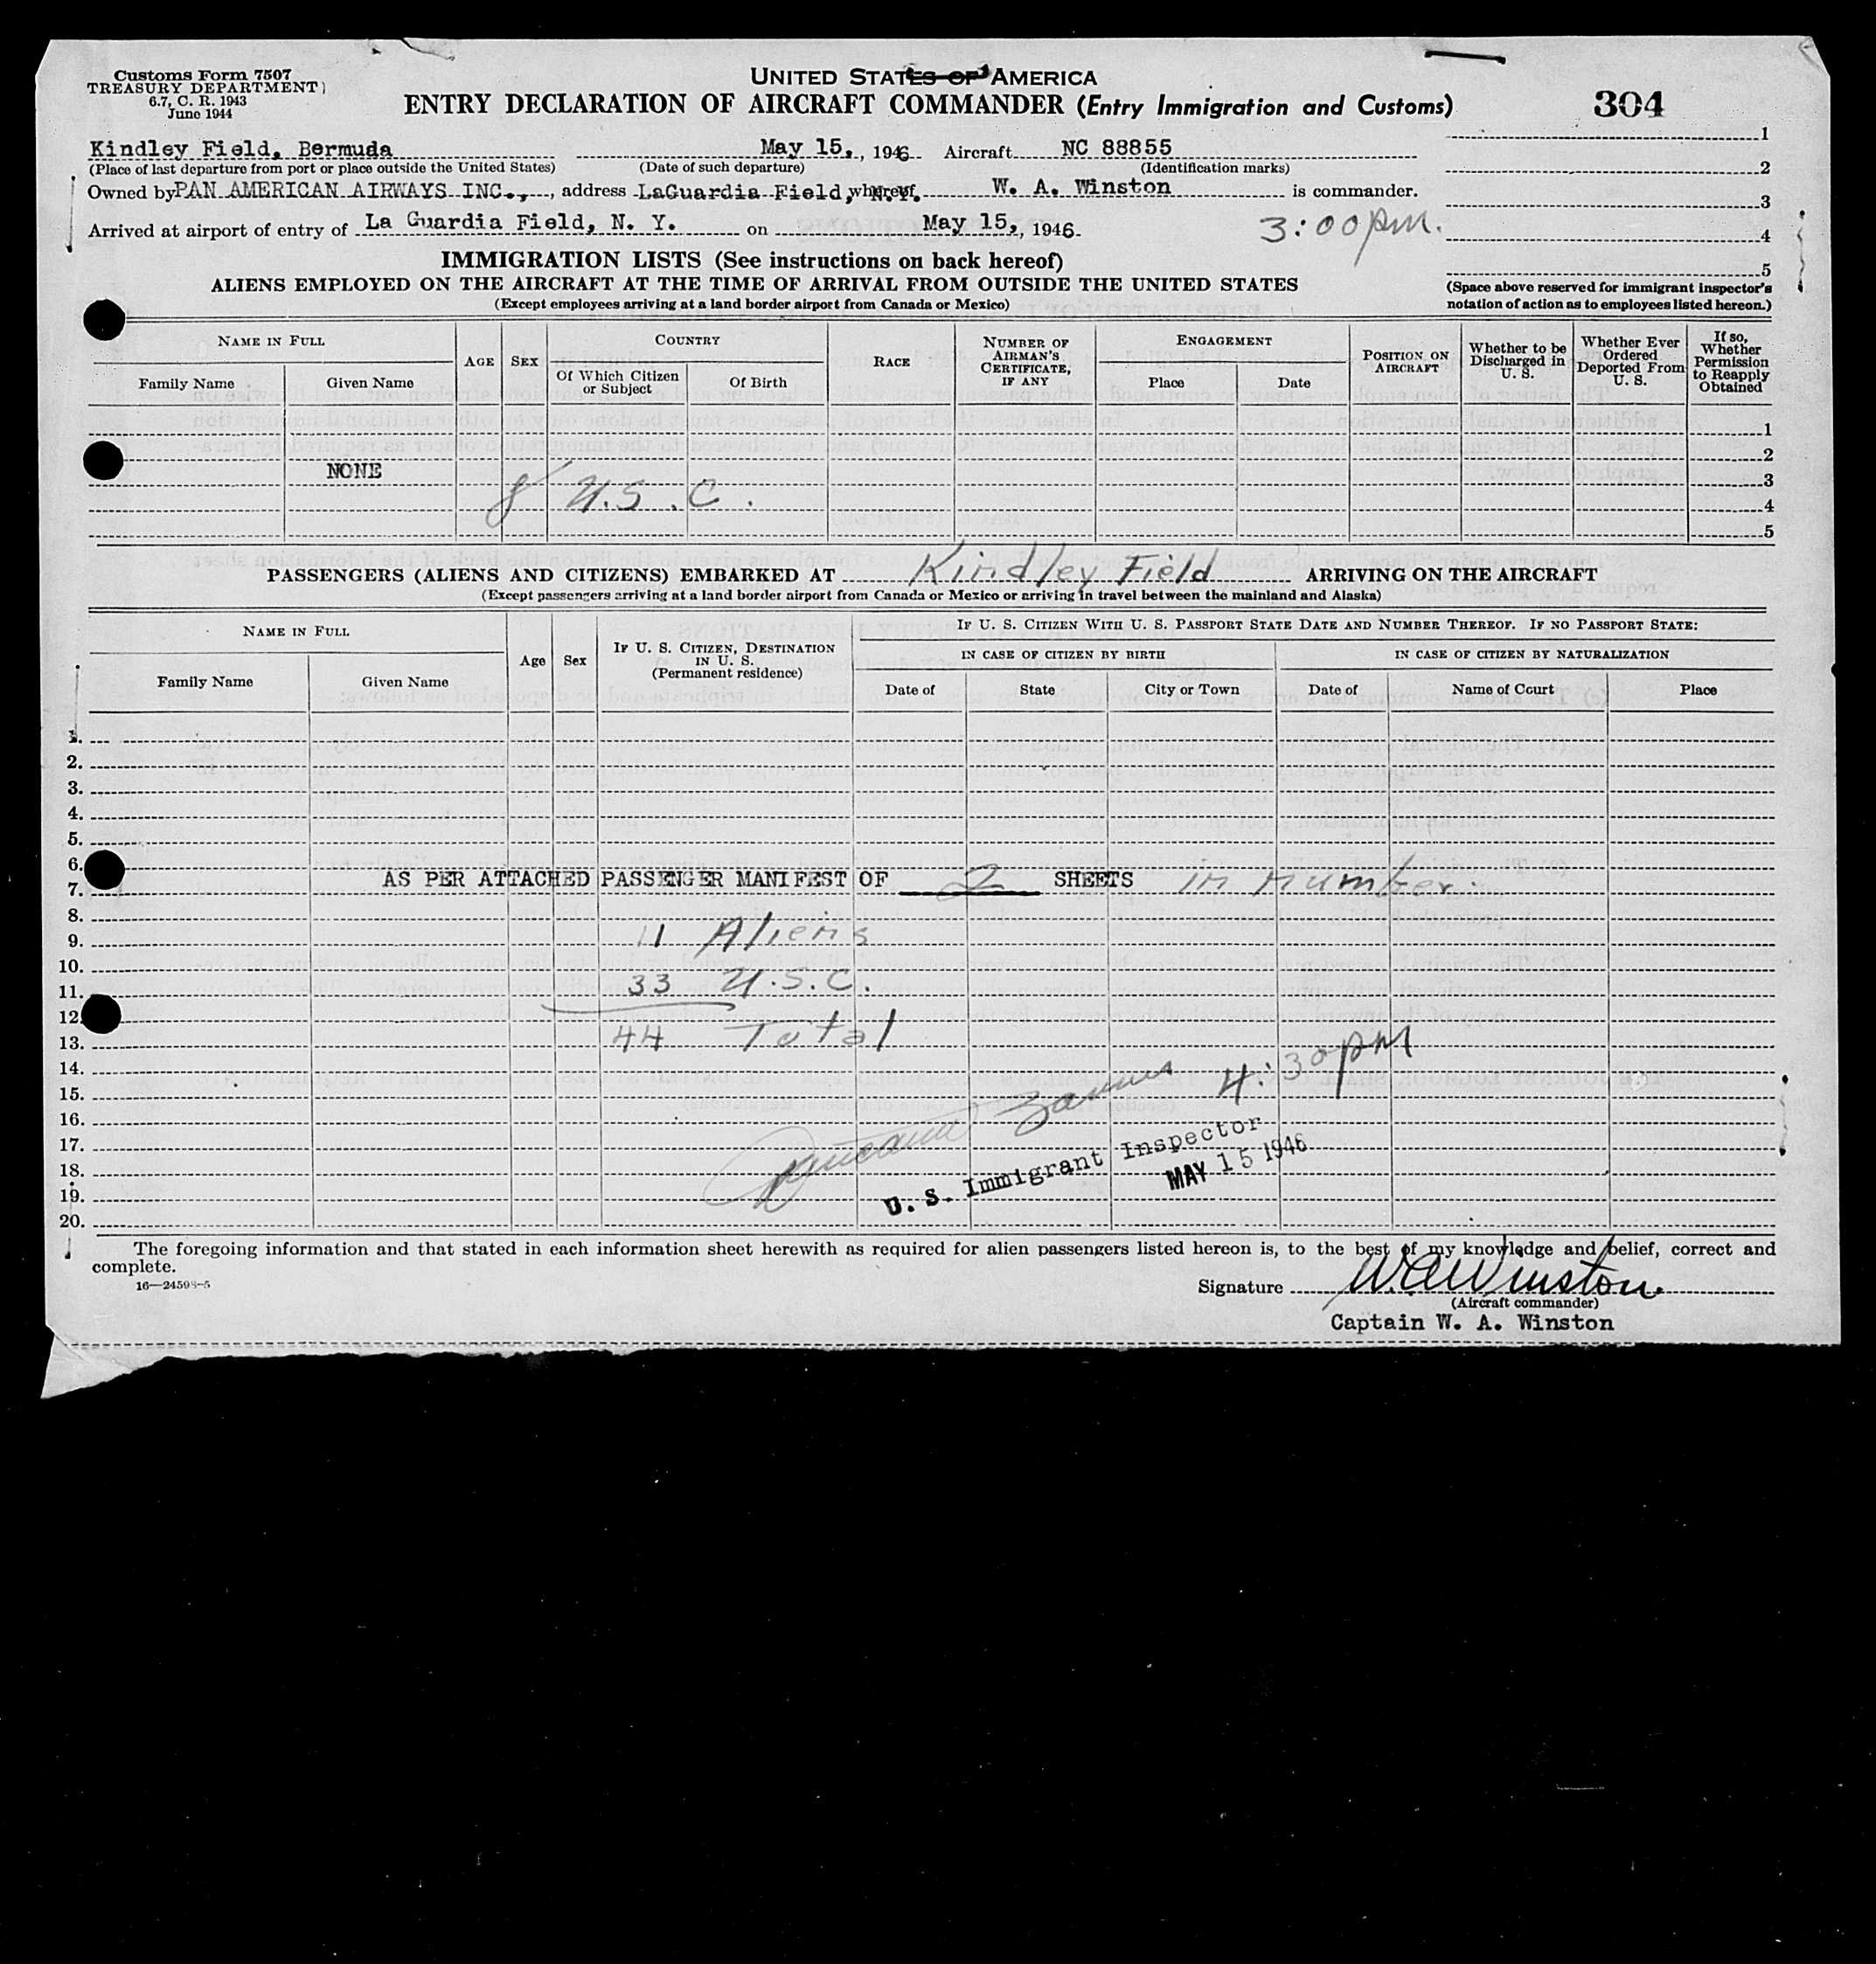 Customs Form 7507
TREASURY DEPARTMENT
6.7, C. R. 1943
June 1944
UNITED STATES OF AMERICA
ENTRY DECLARATION OF AIRCRAFT COMMANDER (Entry Immigration and Customs)
304
1
Kindley Field, Bermuda May 15, 1946 Aircraft NC 88855
(Place of last departure from port or place outside the United States) (Date of such departure) (Identification marks)
2
Owned by PAN AMERICAN AIRWAYS INC., address LaGuardia Field, N.Y. whereof W. A. Winston is commander.
3
Arrived at airport of entry of La Guardia Field, N. Y. on May 15, 1946 3:00 pm.
4
5
IMMIGRATION LISTS (See instructions on back hereof)
ALIENS EMPLOYED ON THE AIRCRAFT AT THE TIME OF ARRIVAL FROM OUTSIDE THE UNITED STATES
(Except employees arriving at a land border airport from Canada or Mexico)
(Space above reserved for immigrant inspector's
notation of action as to employees listed hereon.)
NAME IN FULL
Family Name Given Name
AGE
SEX
COUNTRY
Of Which Citizen
or Subject
Of Birth
RACE
NUMBER OF
AIRMAN'S
CERTIFICATE,
IF ANY
ENGAGEMENT
Place Date
POSITION ON
AIRCRAFT
Whether to be
Discharged in
U. S.
Whether Ever
Ordered
Deported From
U. S.
If so,
Whether
Permission
to Reapply
Obtained
1
2
NONE
3
8 U.S.C.
4
5
PASSENGERS (ALIENS AND CITIZENS) EMBARKED AT Kindley Field ARRIVING ON THE AIRCRAFT
(Except passengers arriving at a land border airport from Canada or Mexico or arriving in travel between the mainland and Alaska)
NAME IN FULL
Family Name Given Name
Age
Sex
IF U. S. CITIZEN, DESTINATION
IN U. S.
(Permanent residence)
IF U. S. CITIZEN WITH U. S. PASSPORT STATE DATE AND NUMBER THEREOF. IF NO PASSPORT STATE:
IN CASE OF CITIZEN BY BIRTH IN CASE OF CITIZEN BY NATURALIZATION
Date of State City or Town Date of Name of Court Place
1.
2.
3.
4.
5.
6.
7. AS PER ATTACHED PASSENGER MANIFEST OF 2 SHEETS in number.
8.
9. 11 Aliens
10.
11. 33 U.S.C.
12.
13. 44 Total
14. 4:30 pm
15.
16.
17. U. S. Immigrant Inspector
18. MAY 15 1946
19.
20.
The foregoing information and that stated in each information sheet herewith as required for alien passengers listed hereon is, to the best of my knowledge and belief, correct and
complete.
16—24598-5
Signature W. A. Winston
(Aircraft commander)
Captain W. A. Winston